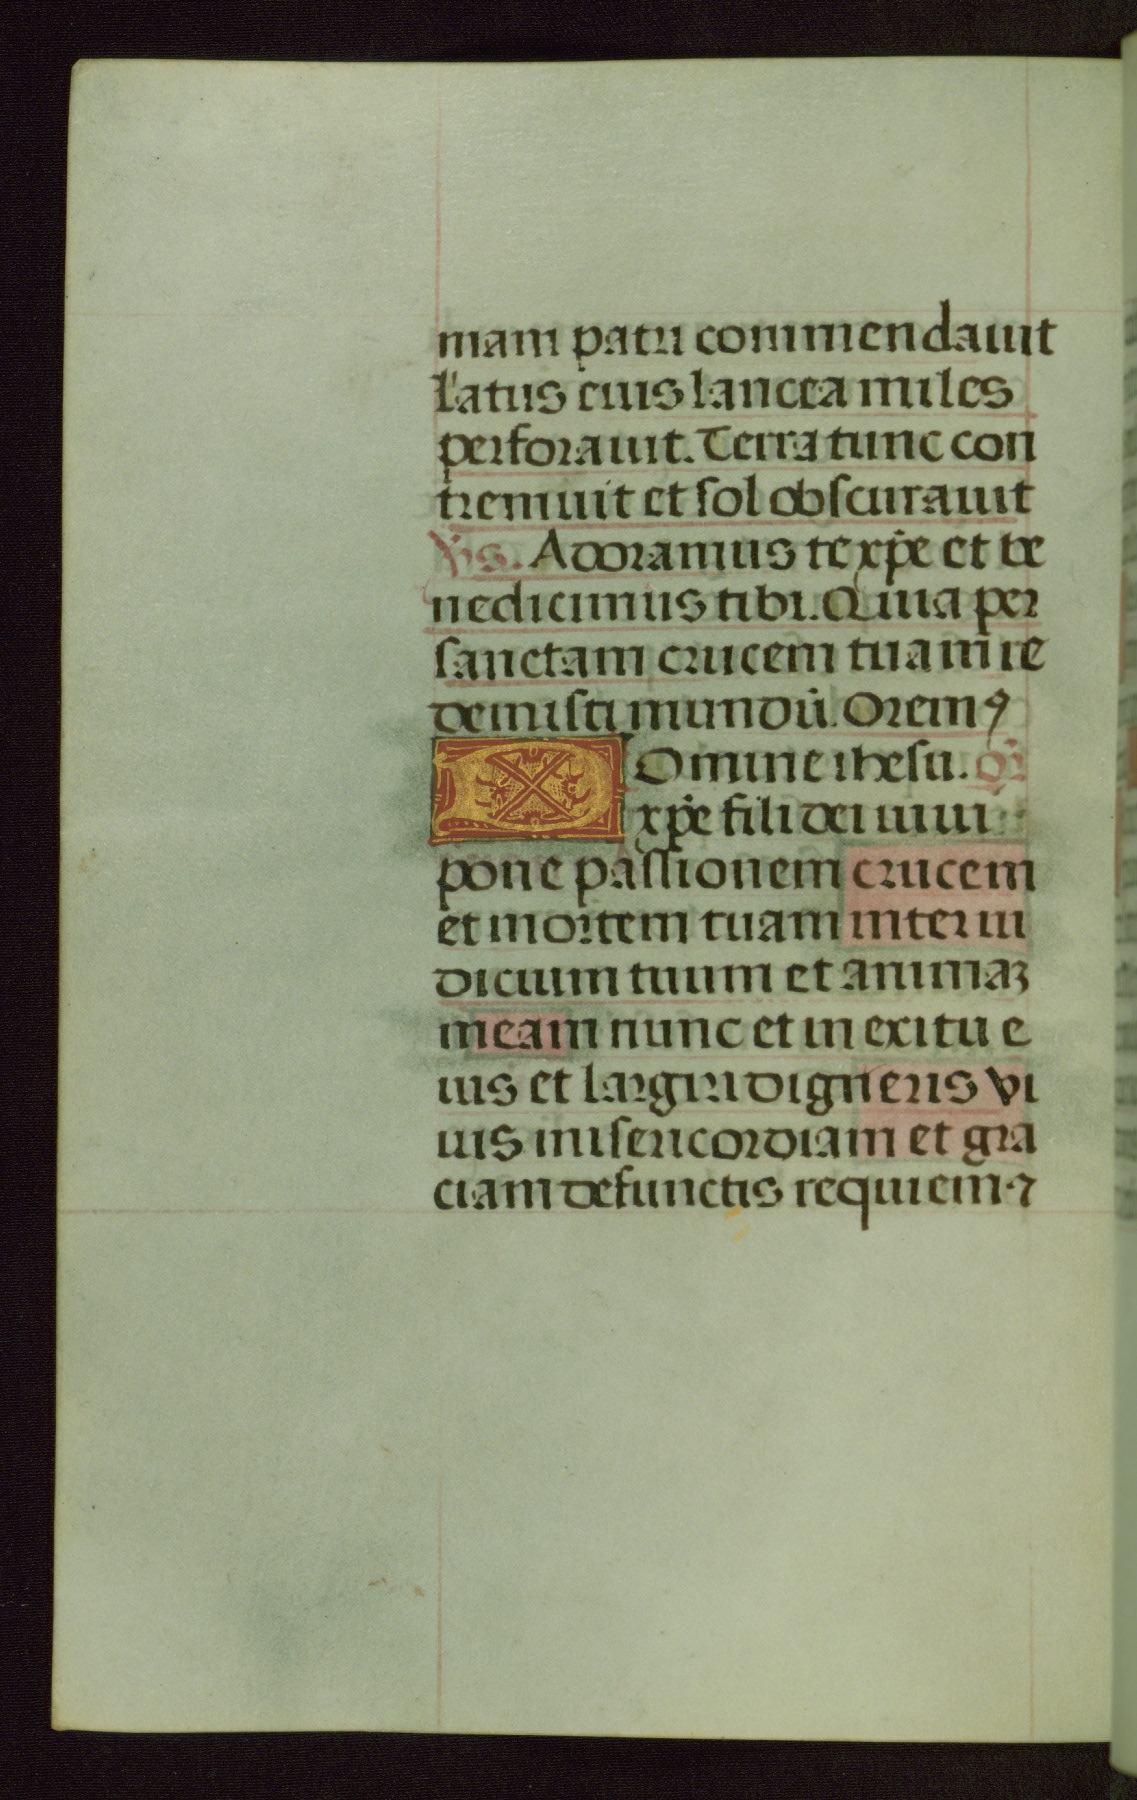 mam patri commendauit
Latus eius lancea miles
perforauit. Terra tunc con
tremuit et sol obscurauit
V̓s. Adoramus te xp̄e et be
nedicimus tibi. Quia per
sanctam crucem tuam re
demisti mundū. Oremꝯ
Domine ihesu. Or̄
xp̄e fili dei uiui
pone passionem crucem
et mortem tuam inter iu
dicium tuum et animaꝫ
meam nunc et in exitu e
ius et largiri digneris vi
uis misericordiam et gra
ciam defunctis requiem ⁊